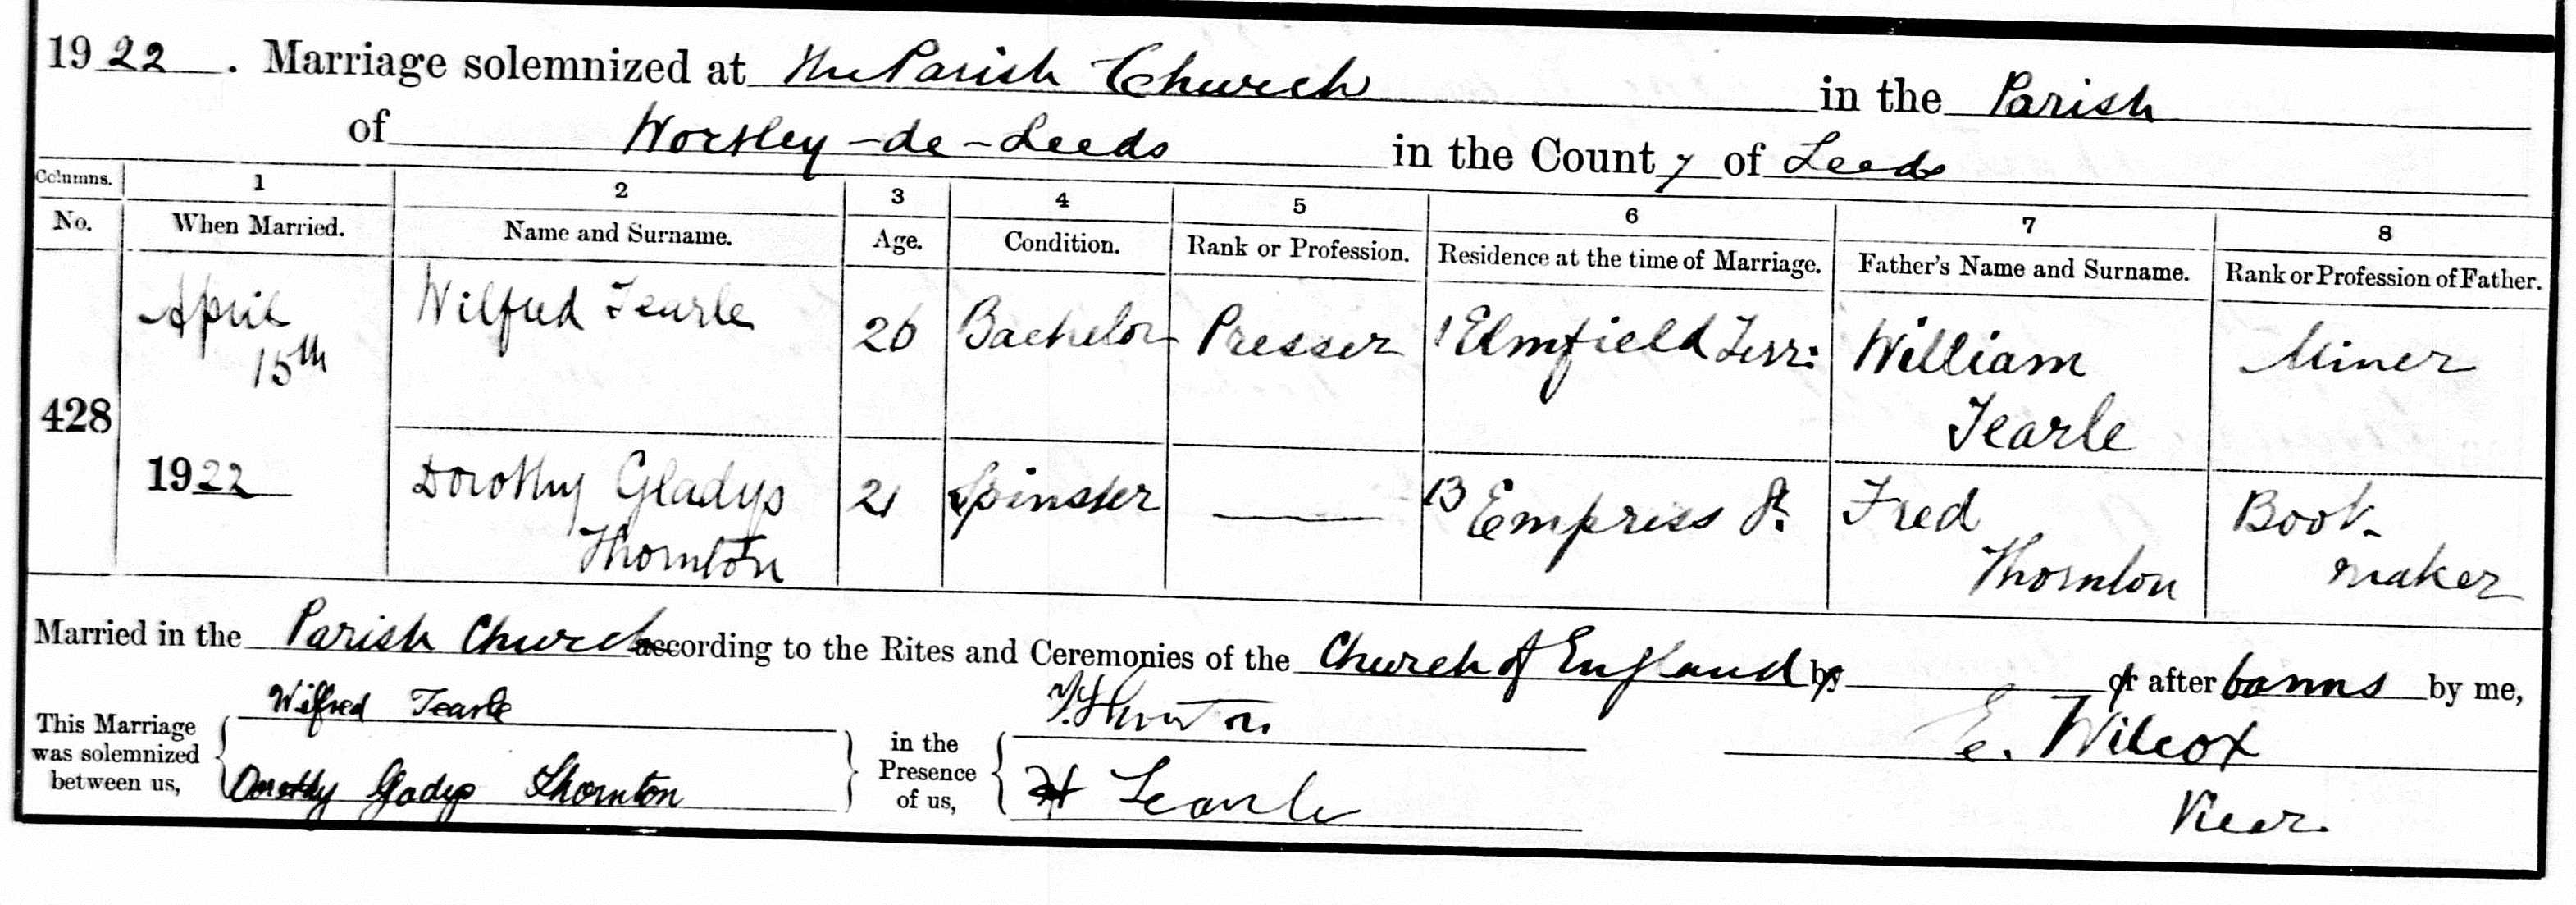 1922. Marriage solemnized at The Parish Church in the Parish
of Wortley-de-Leeds in the County of Leeds
Columns. 1 2 3 4 5 6 7 8
No. When Married. Name and Surname. Age. Condition. Rank or Profession. Residence at the time of Marriage. Father's Name and Surname. Rank or Profession of Father.
April Wilfred Tearle 26 Bachelor Presser 1 Elmfield Terr: William Miner
15th Tearle
428
1922 Dorothy Gladys 21 Spinster — 13 Empress St. Fred Boot-
Thornton Thornton maker
Married in the Parish Church according to the Rites and Ceremonies of the Church of England by or after banns by me,
Wilfred Tearle Thornton E. Wilcox
This Marriage was solemnized between us, in the Presence of us,
Dorothy Gladys Thornton H Tearle Vicar.